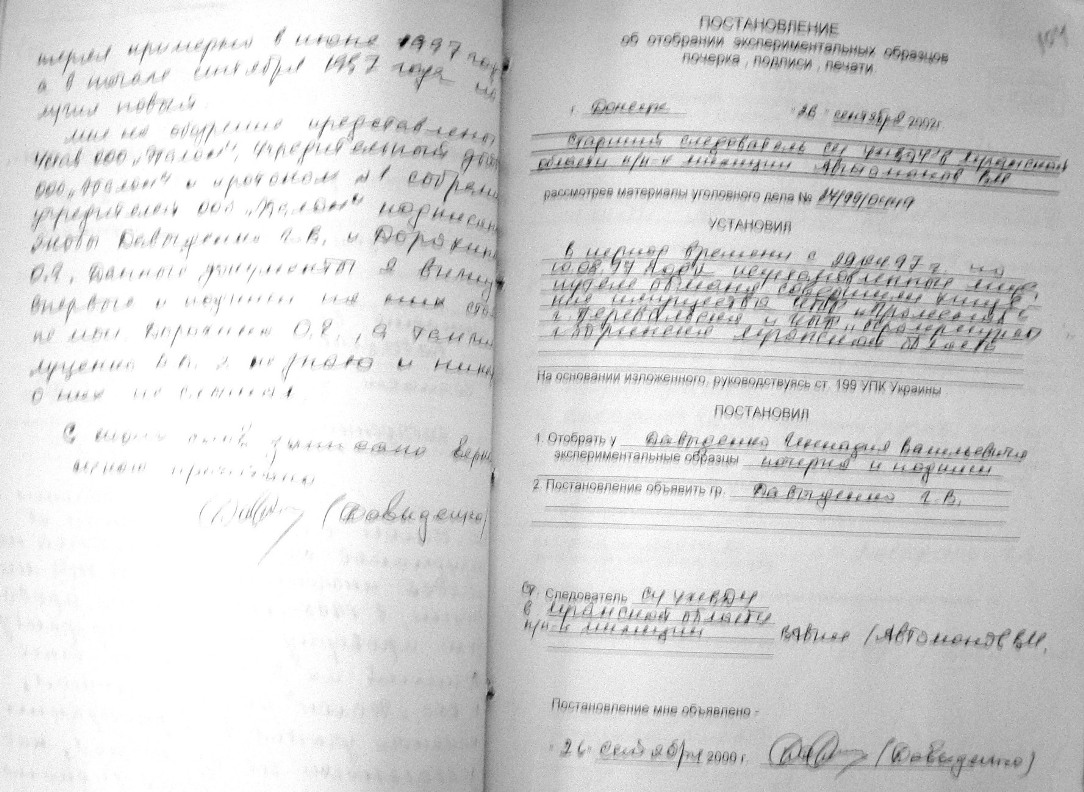 терял примерно в июне 1997 года
а в начале сентября 1997 года по
лучил новый.
мне на обозрение представлены
Устав ООО „Эталон", Учредительный
ООО „Эталон" и протокол №1 собрания
учредителей ООО „Эталон" подписан
Давыденко Г.В. и Дорохин
О.Я. Данные документы я вижу
впервые и подписи на них сто
не мои. Дорохина О.Я., а также
луценко я не знаю и нико
о них не слышал.
С моих слов записано верно
мною прочитано
(Давиденко)
194
ПОСТАНОВЛЕНИЕ
об отобрании экспериментальных образцов
почерка, подписи, печати.
г. Донецк "26" сентября 2002г
Старший следователь СУ УМВДУ в Луганской
области п/п-к милиции Автоманов В.М
рассмотрев материалы уголовного дела № 24/99/0449
УСТАНОВИЛ
в период времени с 29.04.97 г. по
10.08.97 года неустановленные лица
путем обмана совершили хище
ние имущества
г. Перевальска и
Луганской область
На основании изложенного, руководствуясь ст. 199 УПК Украины
ПОСТАНОВИЛ
1. Отобрать у Давыденко Геннадия Васильевича
экспериментальные образцы почерка и подписи
2. Постановление объявить гр. Давыденко Г.В.
Ст. Следователь СУ УМВДУ
в Луганской области
п/п-к милиции (Автоманов В.М.
Постановление мне объявлено -
"26" сентября 2000 г. (Давиденко)